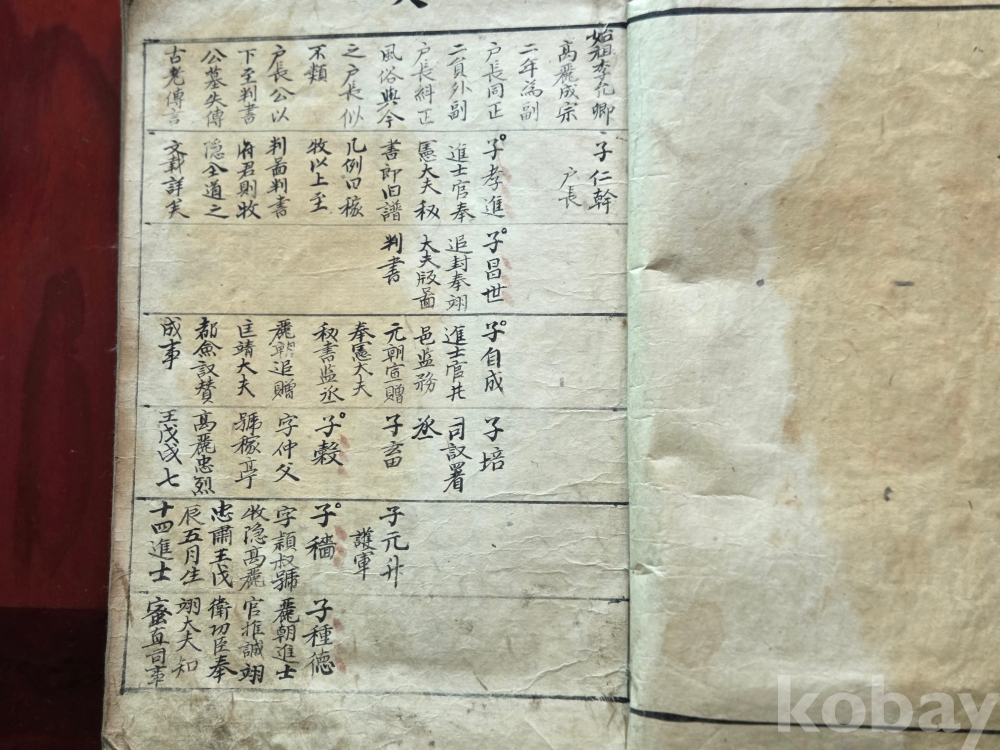 始祖李允卿
高麗成宗
二年為副
户長同正
二員外副
户長糾正
風俗與今
之户長似
不類
户長公以
下至判書
公墓失傳
古老傳言
子仁幹
户長
子孝進
進士官奉
憲大夫秘
書即旧譜
凡例曰稼
牧以上至
判啚判書
府君則牧
隐全道之
文載詳矣
子昌世
追封奉翊
大夫版啚
判書
子自成
進士官井
邑监務
元朝宣贈
奉憲大夫
秘書监丞
麗朝追贈
匡靖大夫
都僉議賛
成事
子培
司設署
丞
子畜
子穀
字仲父
號稼亭
高麗忠烈
王戊戌七
子元升
護軍
子穡
字頴叔號
牧隐高麗
忠肅王戊
辰五月生
十四進士
子種德
麗朝進士
官推誠翊
衛功臣奉
翊大夫知
蜜直司事
kobay